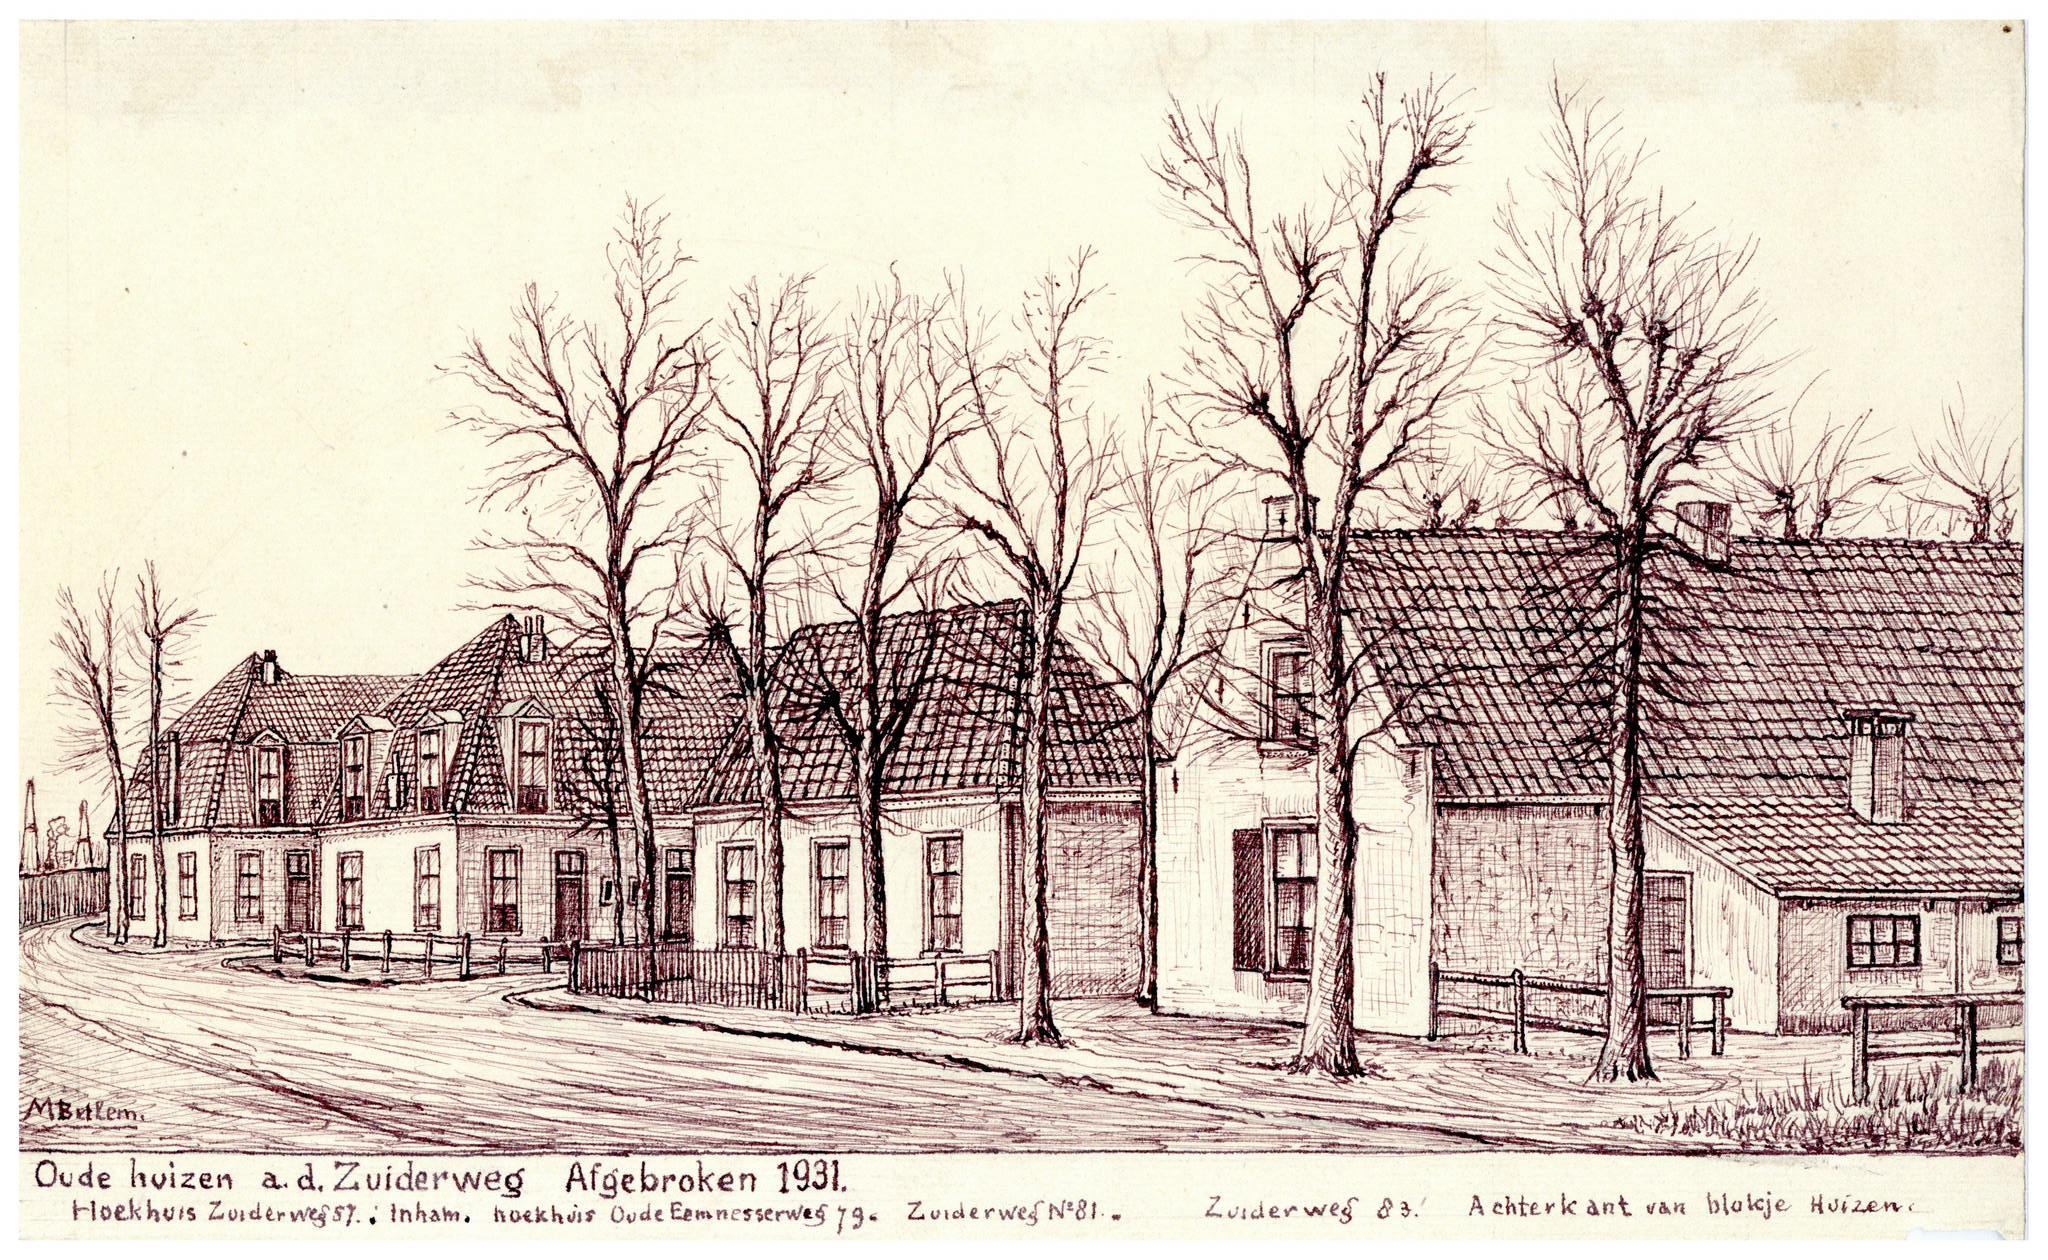 MBetlem.
Oude huizen a.d. Zuiderweg Afgebroken 1931.
Hoekhuis Zuiderweg 57. Inham. hoekhuis Oude Eemnesserweg 79. Zuiderweg No 81. Zuiderweg 83. Achterkant van blokje Huizen.